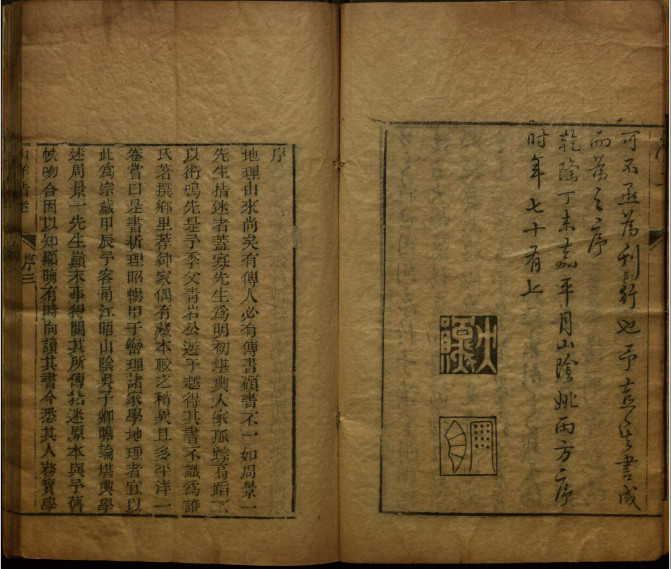 可不亟為刊行也予嘉其書成
而為之序
乾隆丁未嘉平月山陰姚雨方序
时年七十有七
序
地理由來尚矣有傳人必有傳書顧書不一如周景一
先生指迷者蓋寡先生為明初堪輿大家孤踪高蹈不
以術鳴先是予季父青岩公遊于越得其書不識為誰
氏著撰鄉里薦紳家偶有藏本較之稍異且多平洋一
卷嘗曰是書析理昭暢甲于巒理諸家學地理者宜以
此為宗歲甲辰予客甬江晤山陰吳子卿瞻論堪輿學
述周景一先生巔末事得閱其所傳指迷原本與予舊
帙吻合因以知顯晦有時向讀其書今悉其人務實學
山洋指迷
序三